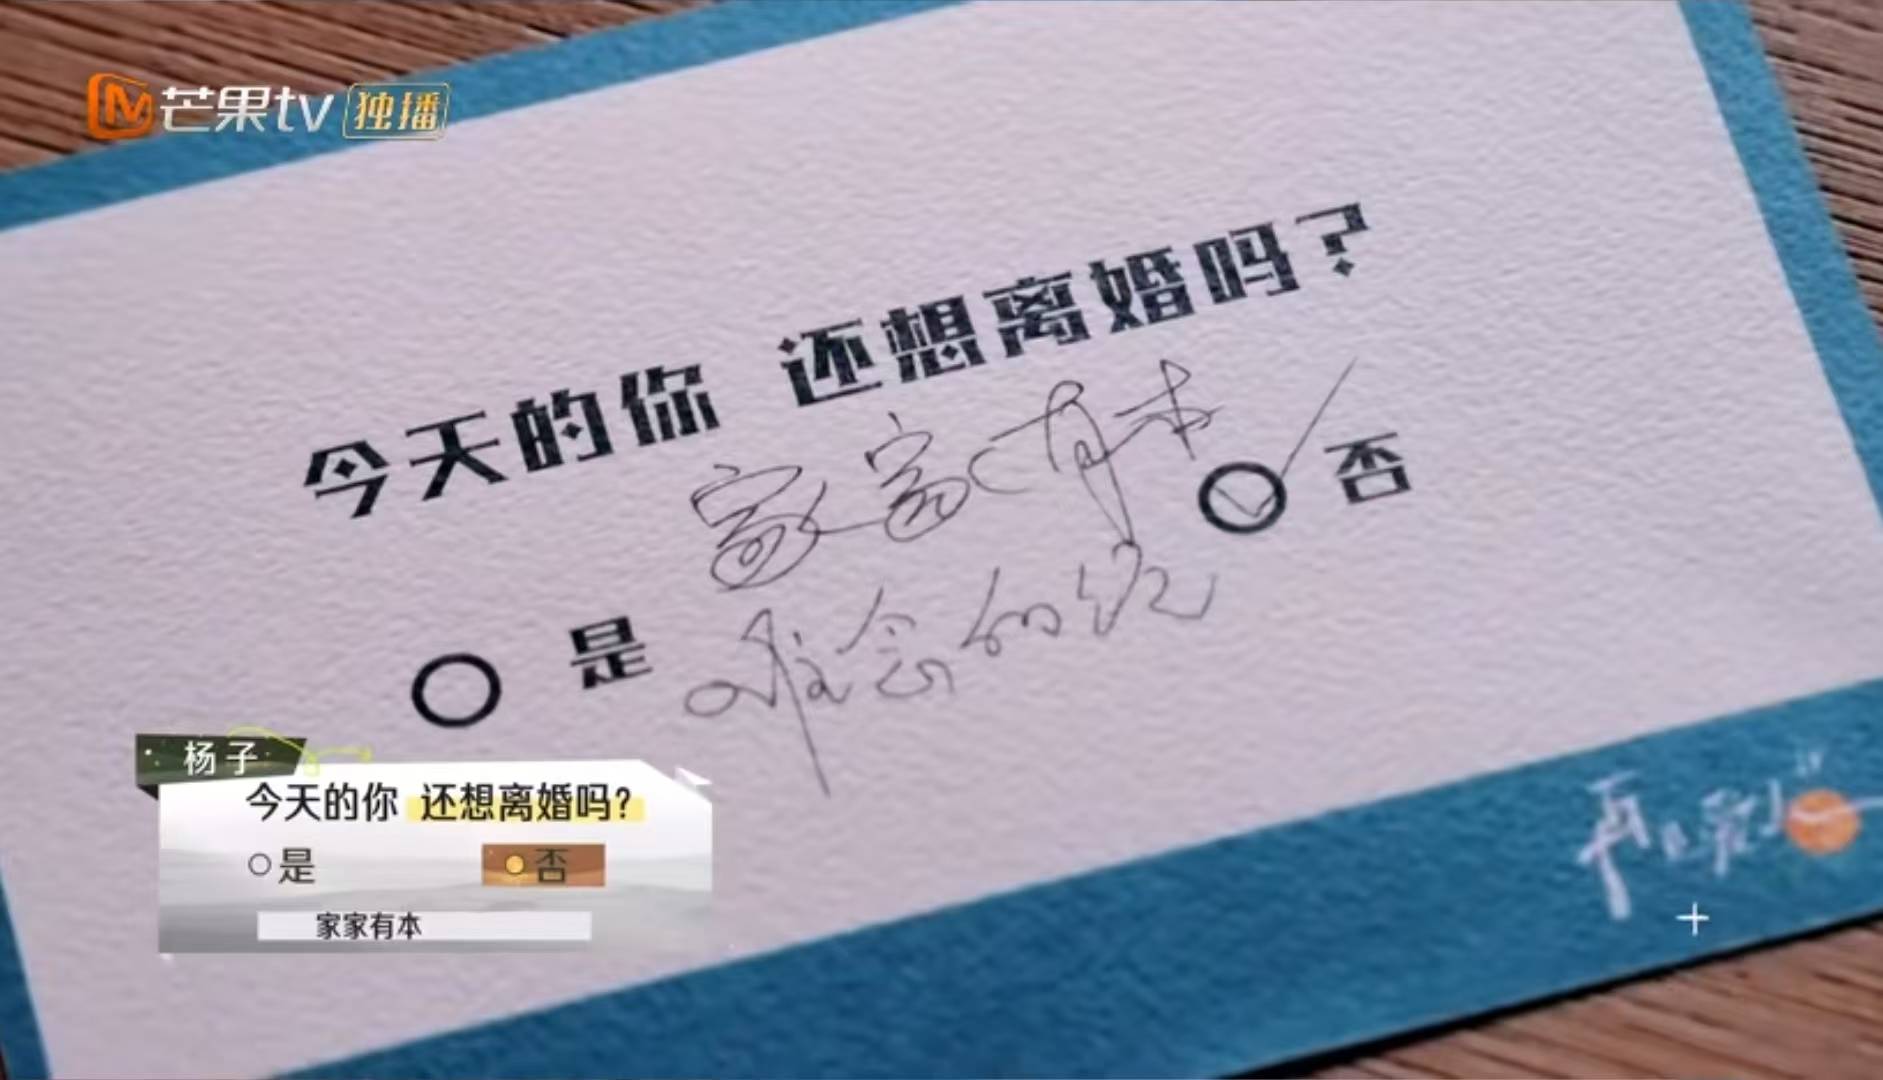 芒果tv 独播
今天的你 还想离婚吗？
家家有本
否
是
难念的经
杨子
今天的你 还想离婚吗？
是
否
家家有本
再见爱人